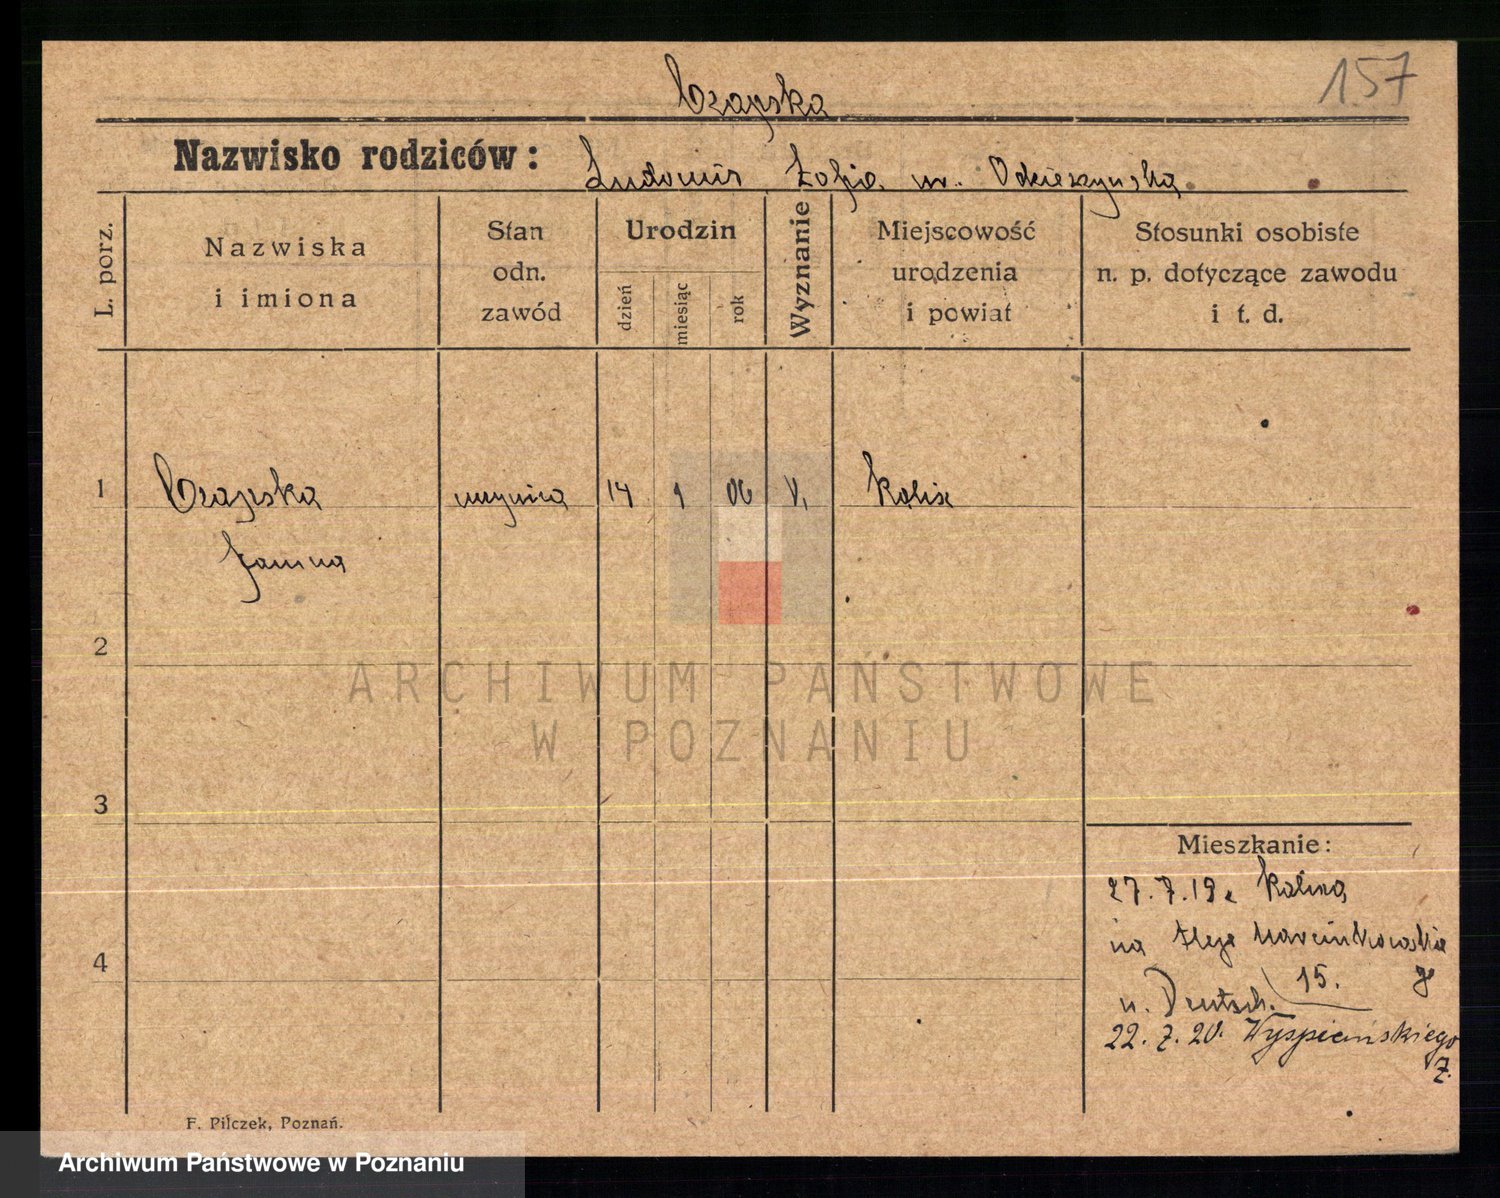 Czapska
157
Nazwisko rodziców: Ludomir Zofia
L. porz.
Nazwiska i imiona
Stan odn. zawód
Urodzin
dzień
miesiąc
rok
Wyznanie
Miejscowość urodzenia i powiat
Stosunki osobiste n. p. dotyczące zawodu i t. d.
1 Czapska 14 1 06 Kalisz
Janina
2
ARCHIWUM PAŃSTWOWE
W POZNANIU
3
Mieszkanie:
27.7.19
na Aleje Marcinkowskie
4
15.
u. Deutsch.
22.7.20. Wyspiańskiego
F. Pilczek, Poznań.
Archiwum Państwowe w Poznaniu